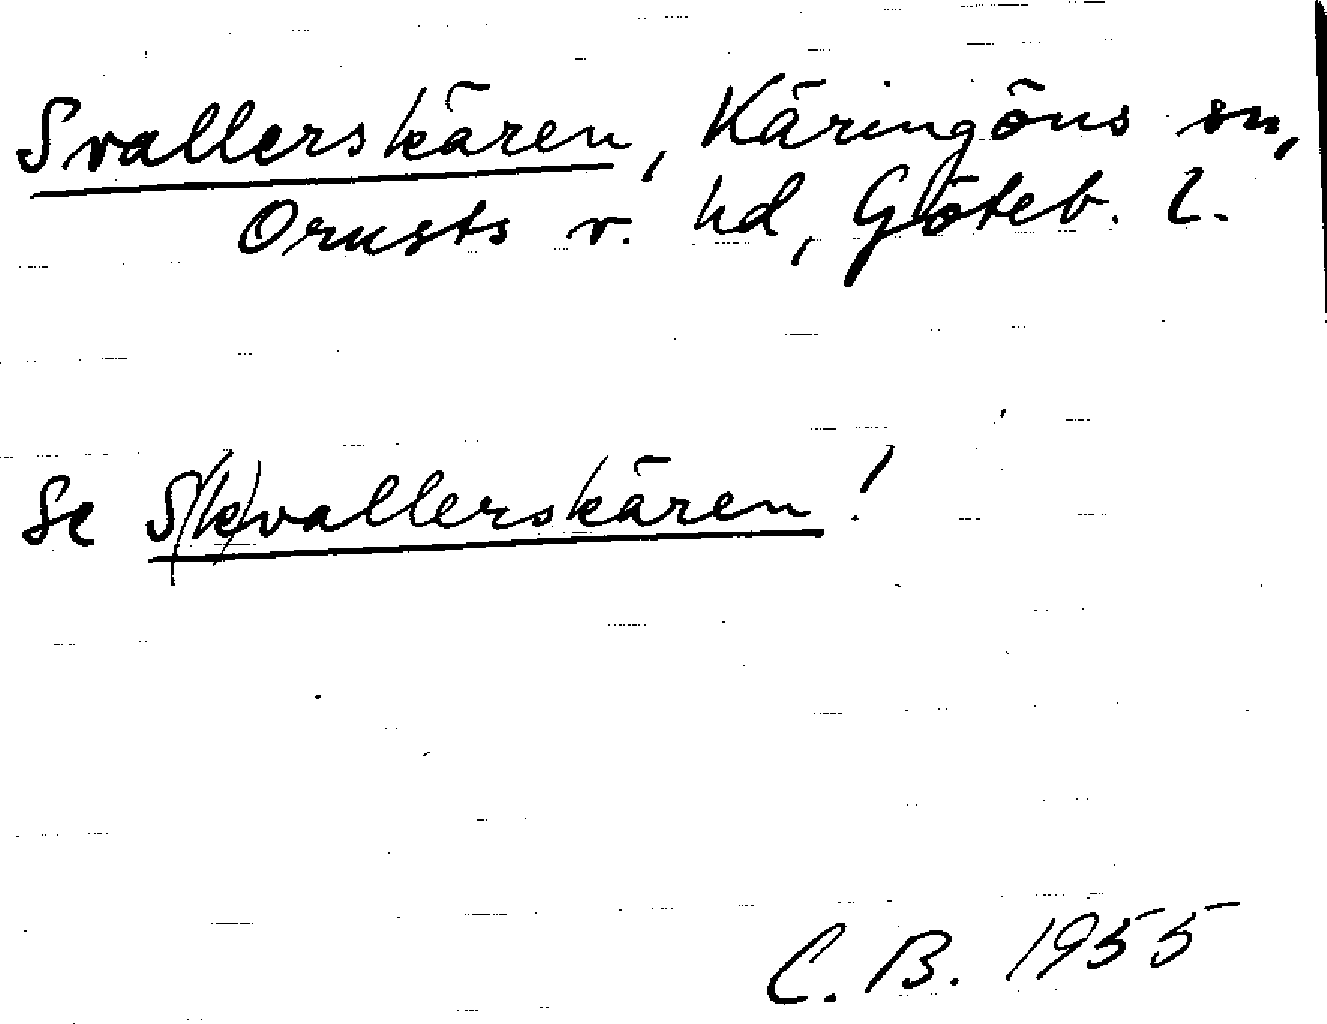 Svallerskären, Käringöns sn,
Orusts v. hd, Göteb. l.
Se S(k)vallerskären!
C. B. 1955